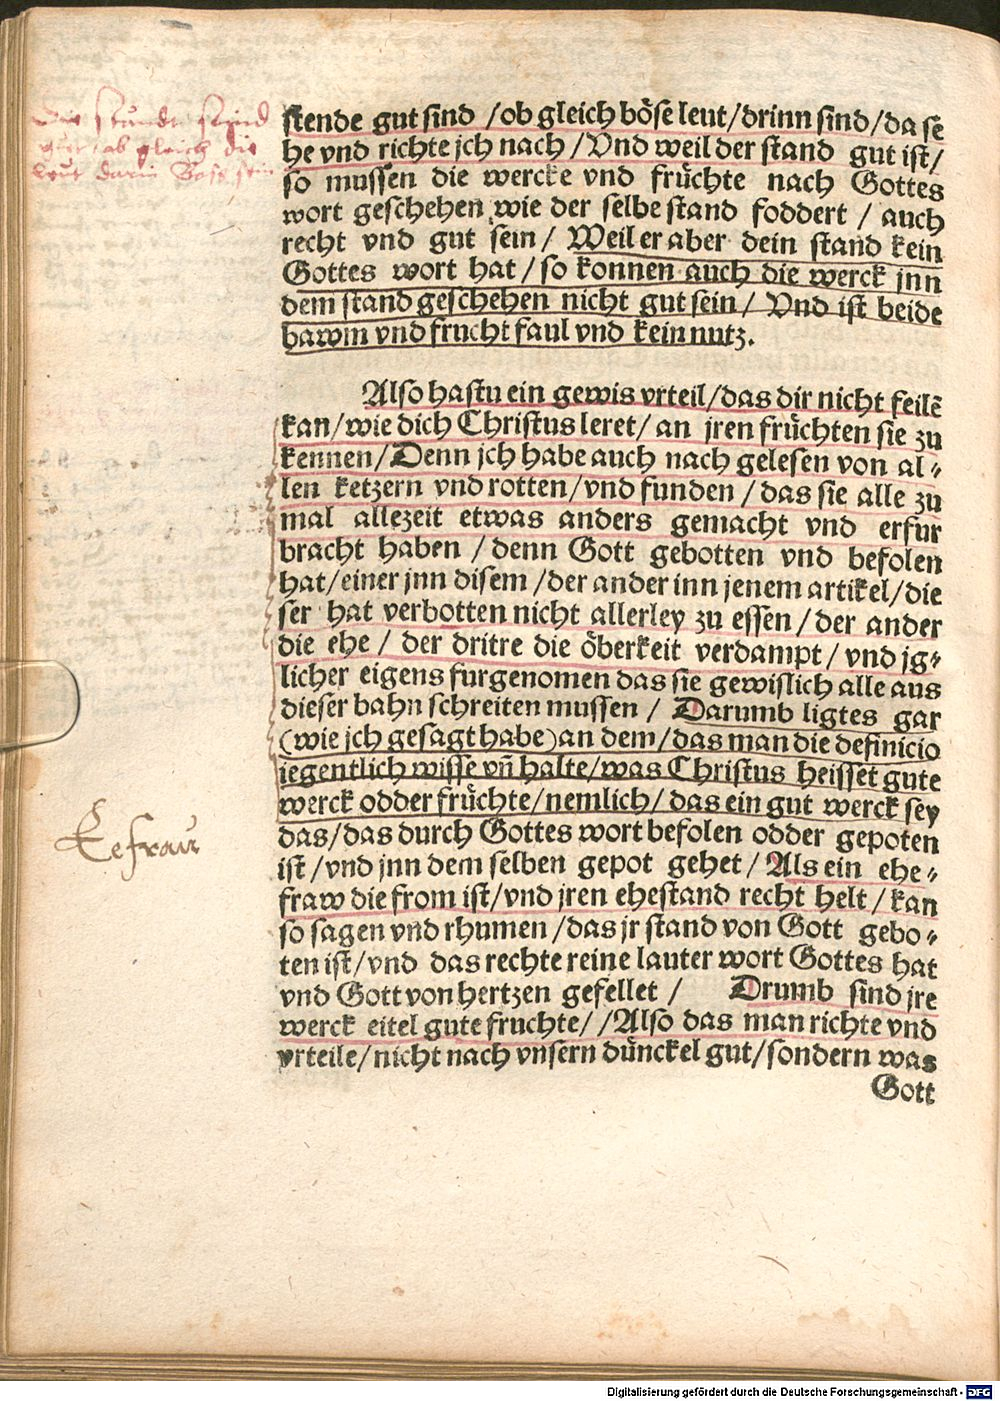 Die stunde seind
gut / ab gleich die
leut darin Bose sein
stende gut sind / ob gleich böse leut / drinn sind / da se
he vnd richte jch nach / Vnd weil der stand gut ist /
so mussen die wercke vnd früchte nach Gottes
wort geschehen wie der selbe stand foddert / auch
recht vnd gut sein / Weil er aber dein stand kein
Gottes wort hat / so konnen auch die werck jnn
dem stand geschehen nicht gut sein / Vnd ist beide
bawm vnd frucht faul vnd kein nutz.
Also hastu ein gewis vrteil / das dir nicht feilē
kan / wie dich Christus leret / an jren früchten sie zu
kennen / Denn jch habe auch nach gelesen von al⸗
len ketzern vnd rotten / vnd funden / das sie alle zu
mal allezeit etwas anders gemacht vnd erfur
bracht haben / denn Gott gebotten vnd befolen
hat / einer jnn disem / der ander inn jenem artikel / die
ser hat verbotten nicht allerley zu essen / der ander
die ehe / der dritre die öberkeit verdampt / vnd jg⸗
licher eigens furgenomen das sie gewislich alle aus
dieser bahn schreiten mussen / Darumb ligtes gar
(wie jch gesagt habe) an dem / das man die definicio
iegentlich wisse vñ halte / was Christus heisset gute
werck odder früchte / nemlich / das ein gut werck sey
das / das durch Gottes wort befolen odder gepoten
ist / vnd jnn dem selben gepot gehet / Als ein ehe⸗
fraw die from ist / vnd jren ehestand recht helt / kan
so sagen vnd rhumen / das jr stand von Gott gebo⸗
ten ist / vnd das rechte reine lauter wort Gottes hat
vnd Gott von hertzen gefellet / Drumb sind jre
werck eitel gute fruchte / / Also das man richte vnd
vrteile / nicht nach vnsern dünckel gut / sondern was
Gott
Eefraur
Digitalisierung gefördert durch die Deutsche Forschungsgemeinschaft - DFG